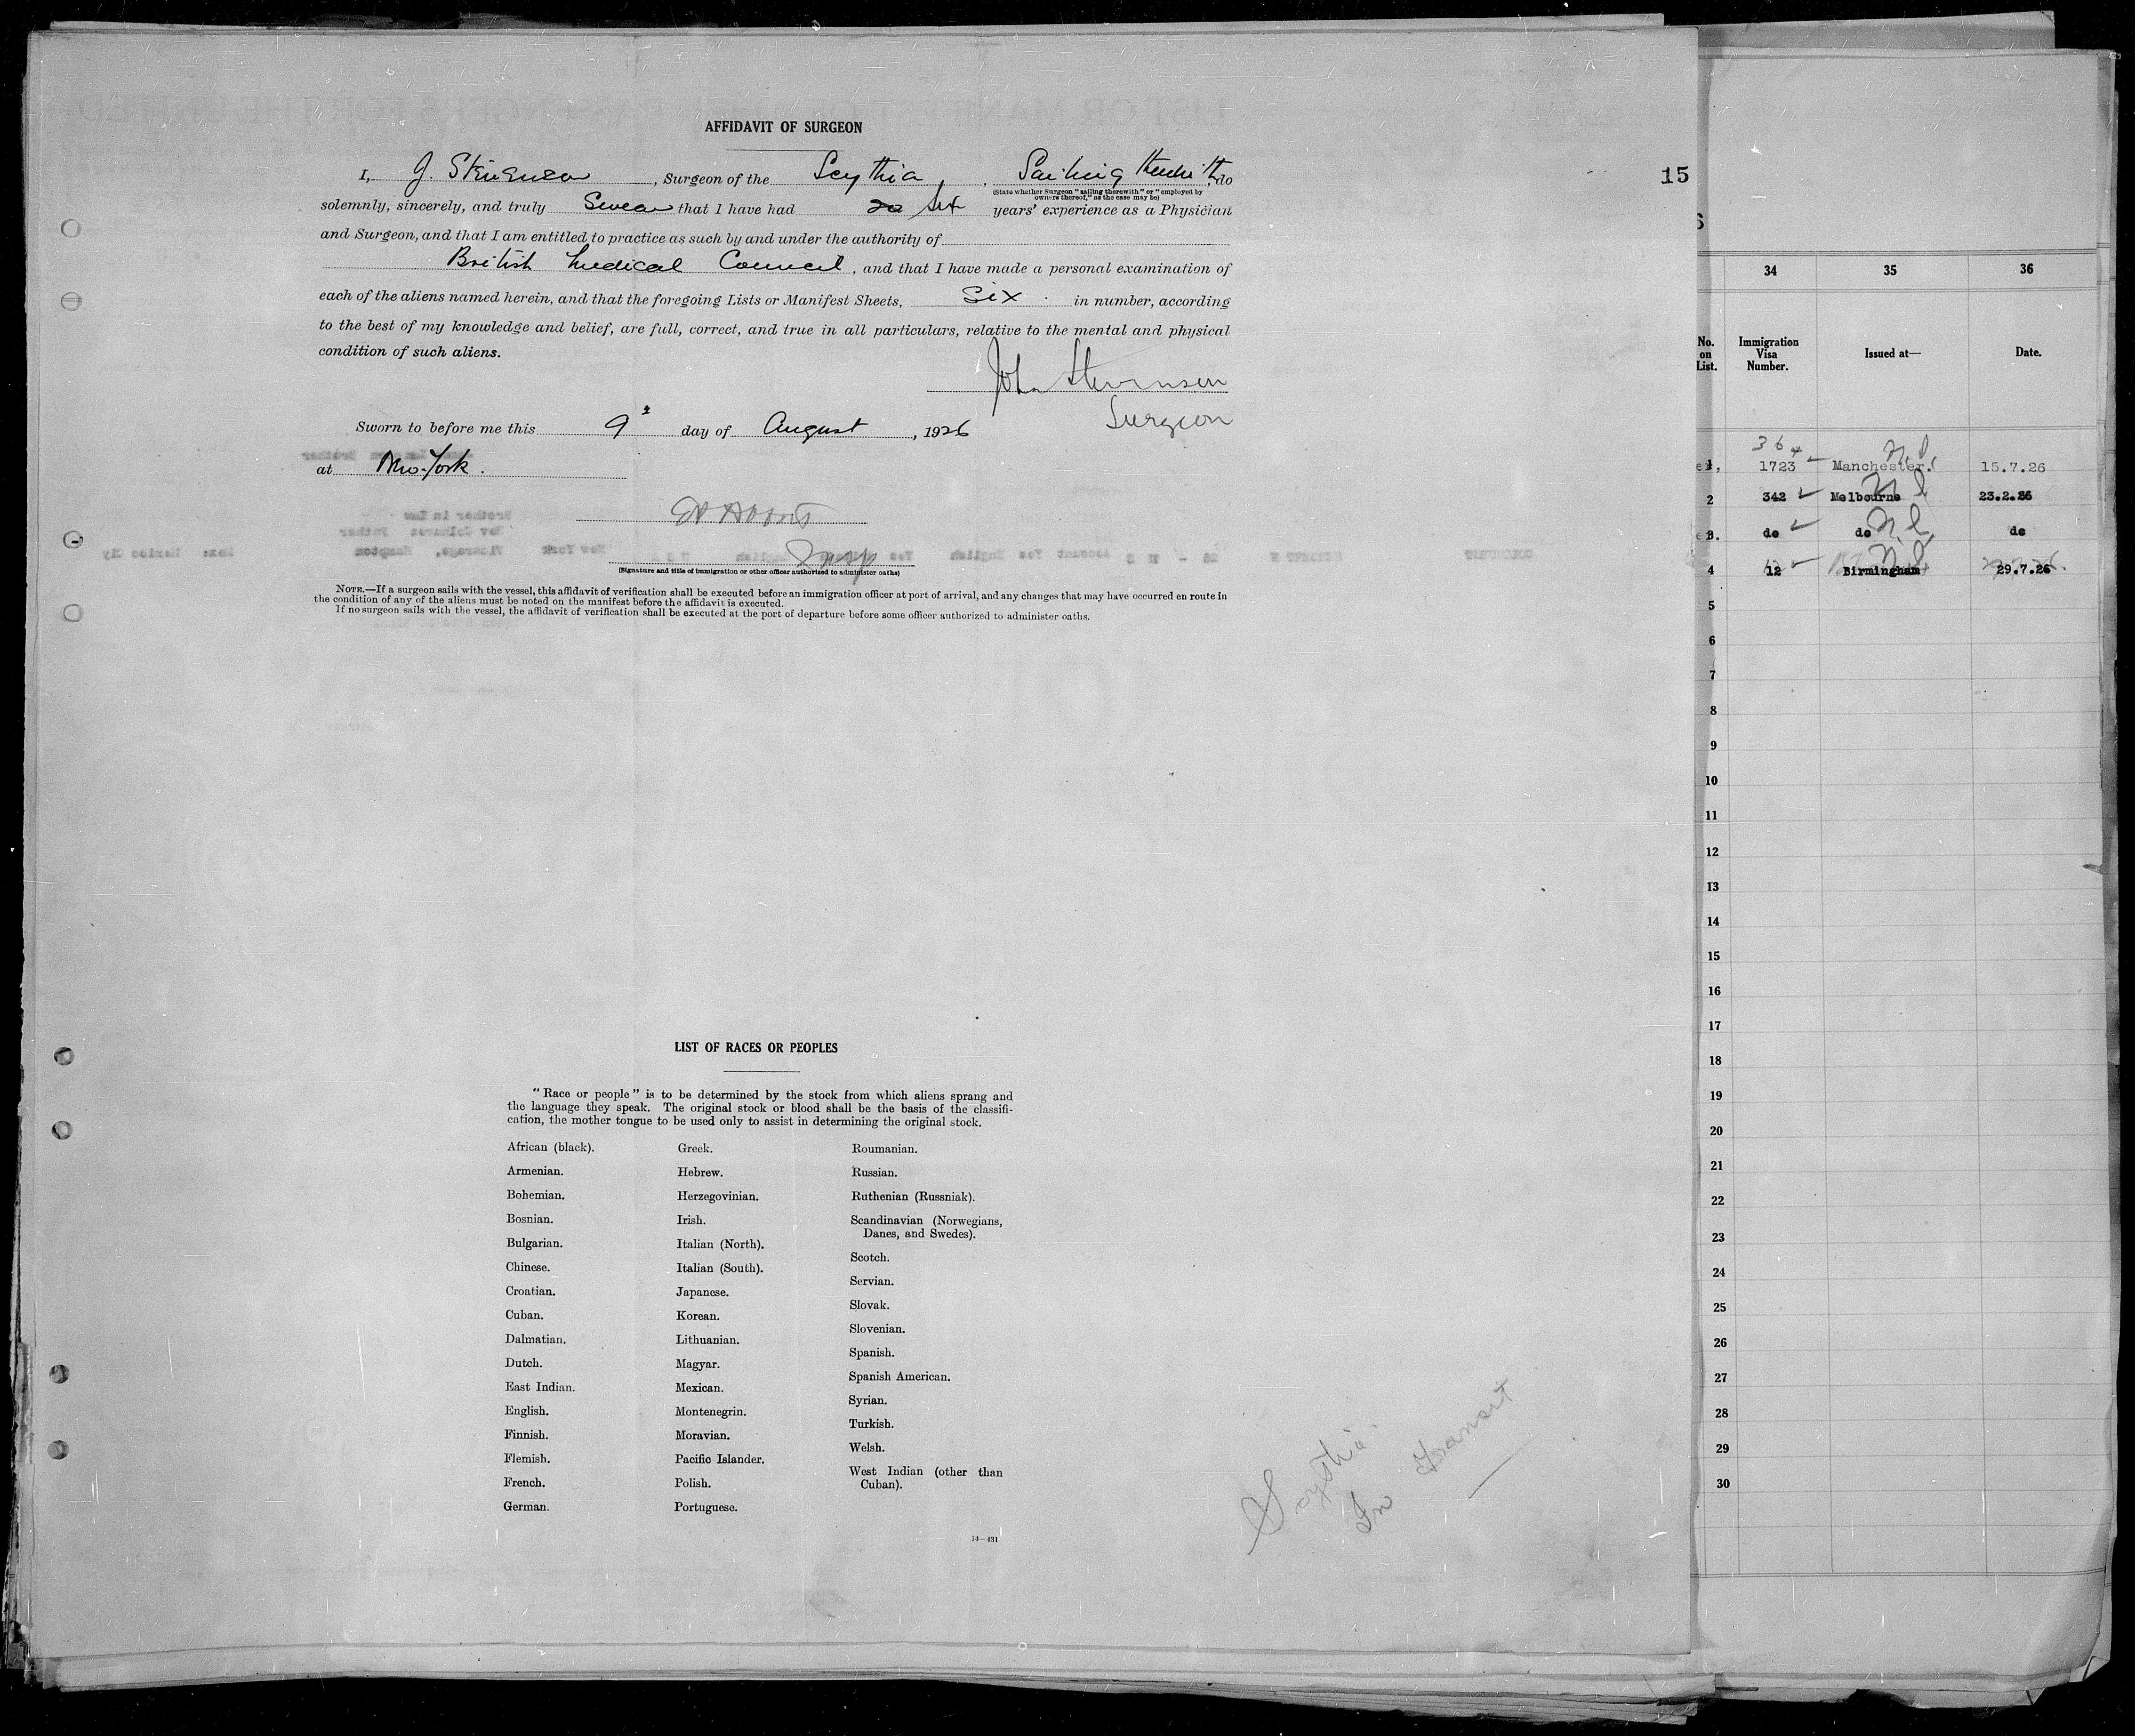 AFFIDAVIT OF SURGEON
I, J. Stevenson, Surgeon of the Scythia, Sailing therewith, do
(State whether Surgeon "sailing therewith" or "employed by
owners thereof," as the case may be)
solemnly, sincerely, and truly Swear that I have had six years' experience as a Physician
and Surgeon, and that I am entitled to practice as such by and under the authority of
British Medical Council, and that I have made a personal examination of
each of the aliens named herein, and that the foregoing Lists or Manifest Sheets, Six in number, according
to the best of my knowledge and belief, are full, correct, and true in all particulars, relative to the mental and physical
condition of such aliens.
John Stevenson
Surgeon
Sworn to before me this 9 day of August, 1926
at New-York.
Insp
(Signature and title of immigration or other officer authorized to administer oaths)
NOTE.—If a surgeon sails with the vessel, this affidavit of verification shall be executed before an immigration officer at port of arrival, and any changes that may have occurred en route in
the condition of any of the aliens must be noted on the manifest before the affidavit is executed.
If no surgeon sails with the vessel, the affidavit of verification shall be executed at the port of departure before some officer authorized to administer oaths.
LIST OF RACES OR PEOPLES
"Race or people" is to be determined by the stock from which aliens sprang and
the language they speak. The original stock or blood shall be the basis of the classifi-
cation, the mother tongue to be used only to assist in determining the original stock.
African (black).
Armenian.
Bohemian.
Bosnian.
Bulgarian.
Chinese.
Croatian.
Cuban.
Dalmatian.
Dutch.
East Indian.
English.
Finnish.
Flemish.
French.
German.
Greek.
Hebrew.
Herzegovinian.
Irish.
Italian (North).
Italian (South).
Japanese.
Korean.
Lithuanian.
Magyar.
Mexican.
Montenegrin.
Moravian.
Pacific Islander.
Polish.
Portuguese.
Roumanian.
Russian.
Ruthenian (Russniak).
Scandinavian (Norwegians,
Danes, and Swedes).
Scotch.
Servian.
Slovak.
Slovenian.
Spanish.
Spanish American.
Syrian.
Turkish.
Welsh.
West Indian (other than
Cuban).
14-431
Scythia
In Transit
15
34 35 36
No. on List. Immigration Visa Number. Issued at— Date.
36
1, 1723 Manchester. 15.7.26
2 342 Melbourne 23.2.26
3. do do do
4 12 Birmingham 29.7.26
5
6
7
8
9
10
11
12
13
14
15
16
17
18
19
20
21
22
23
24
25
26
27
28
29
30